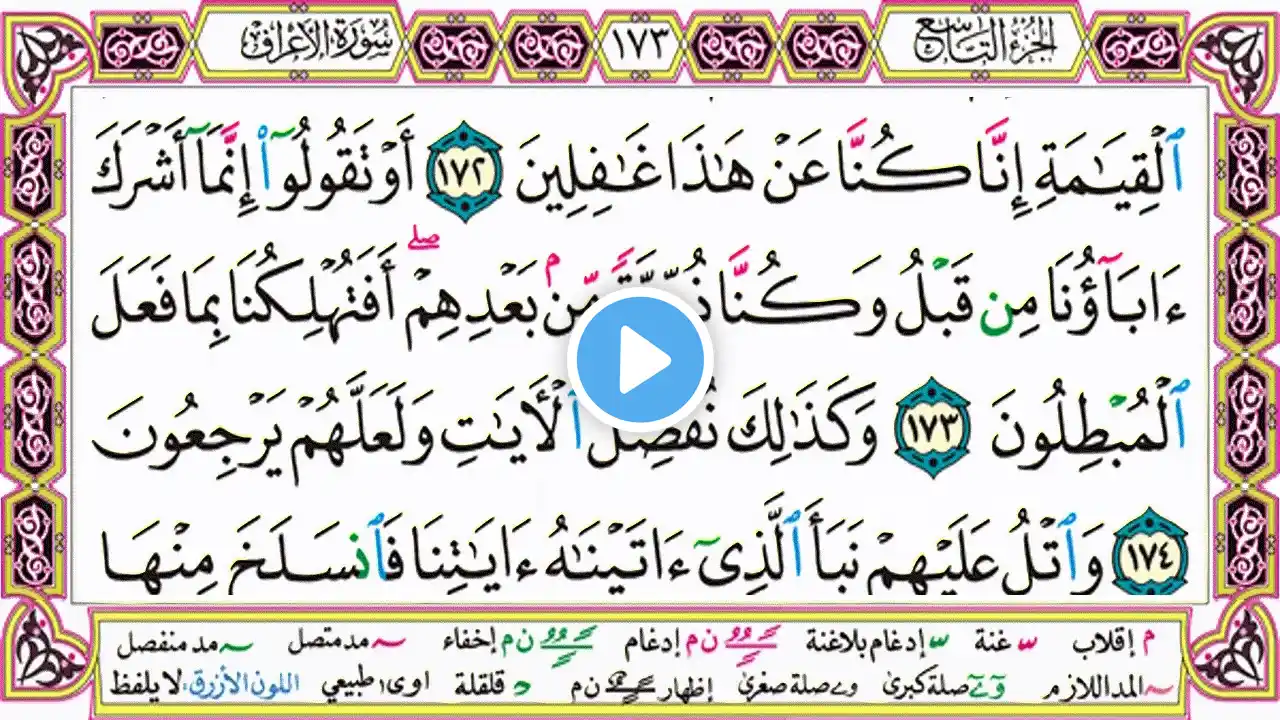 الجزء التاسع ١٧٣ سورة الأعراف
ٱلْقِيَٰمَةِ إِنَّا كُنَّا عَنْ هَٰذَا غَٰفِلِينَ ١٧٢ أَوْ تَقُولُوٓا۟ إِنَّمَآ أَشْرَكَ
ءَابَآؤُنَا مِن قَبْلُ وَكُنَّا مِّنۢ بَعْدِهِمْ ۖ أَفَتُهْلِكُنَا بِمَا فَعَلَ
ٱلْمُبْطِلُونَ ١٧٣ وَكَذَٰلِكَ نُفَصِّلُ ٱلْأَيَٰتِ وَلَعَلَّهُمْ يَرْجِعُونَ
١٧٤ وَٱتْلُ عَلَيْهِمْ نَبَأَ ٱلَّذِىٓ ءَاتَيْنَٰهُ ءَايَٰتِنَا فَٱنسَلَخَ مِنْهَا
م إقلاب س غنة س إدغام بلاغنة ن م إدغام ن م إخفاء ~ مد متصل ~ مد منفصل
~ المد اللازم صلة كبرى صلة صغرى إظهار ن م د قلقلة اوى طبيعي اللون الأزرق: لا يلفظ